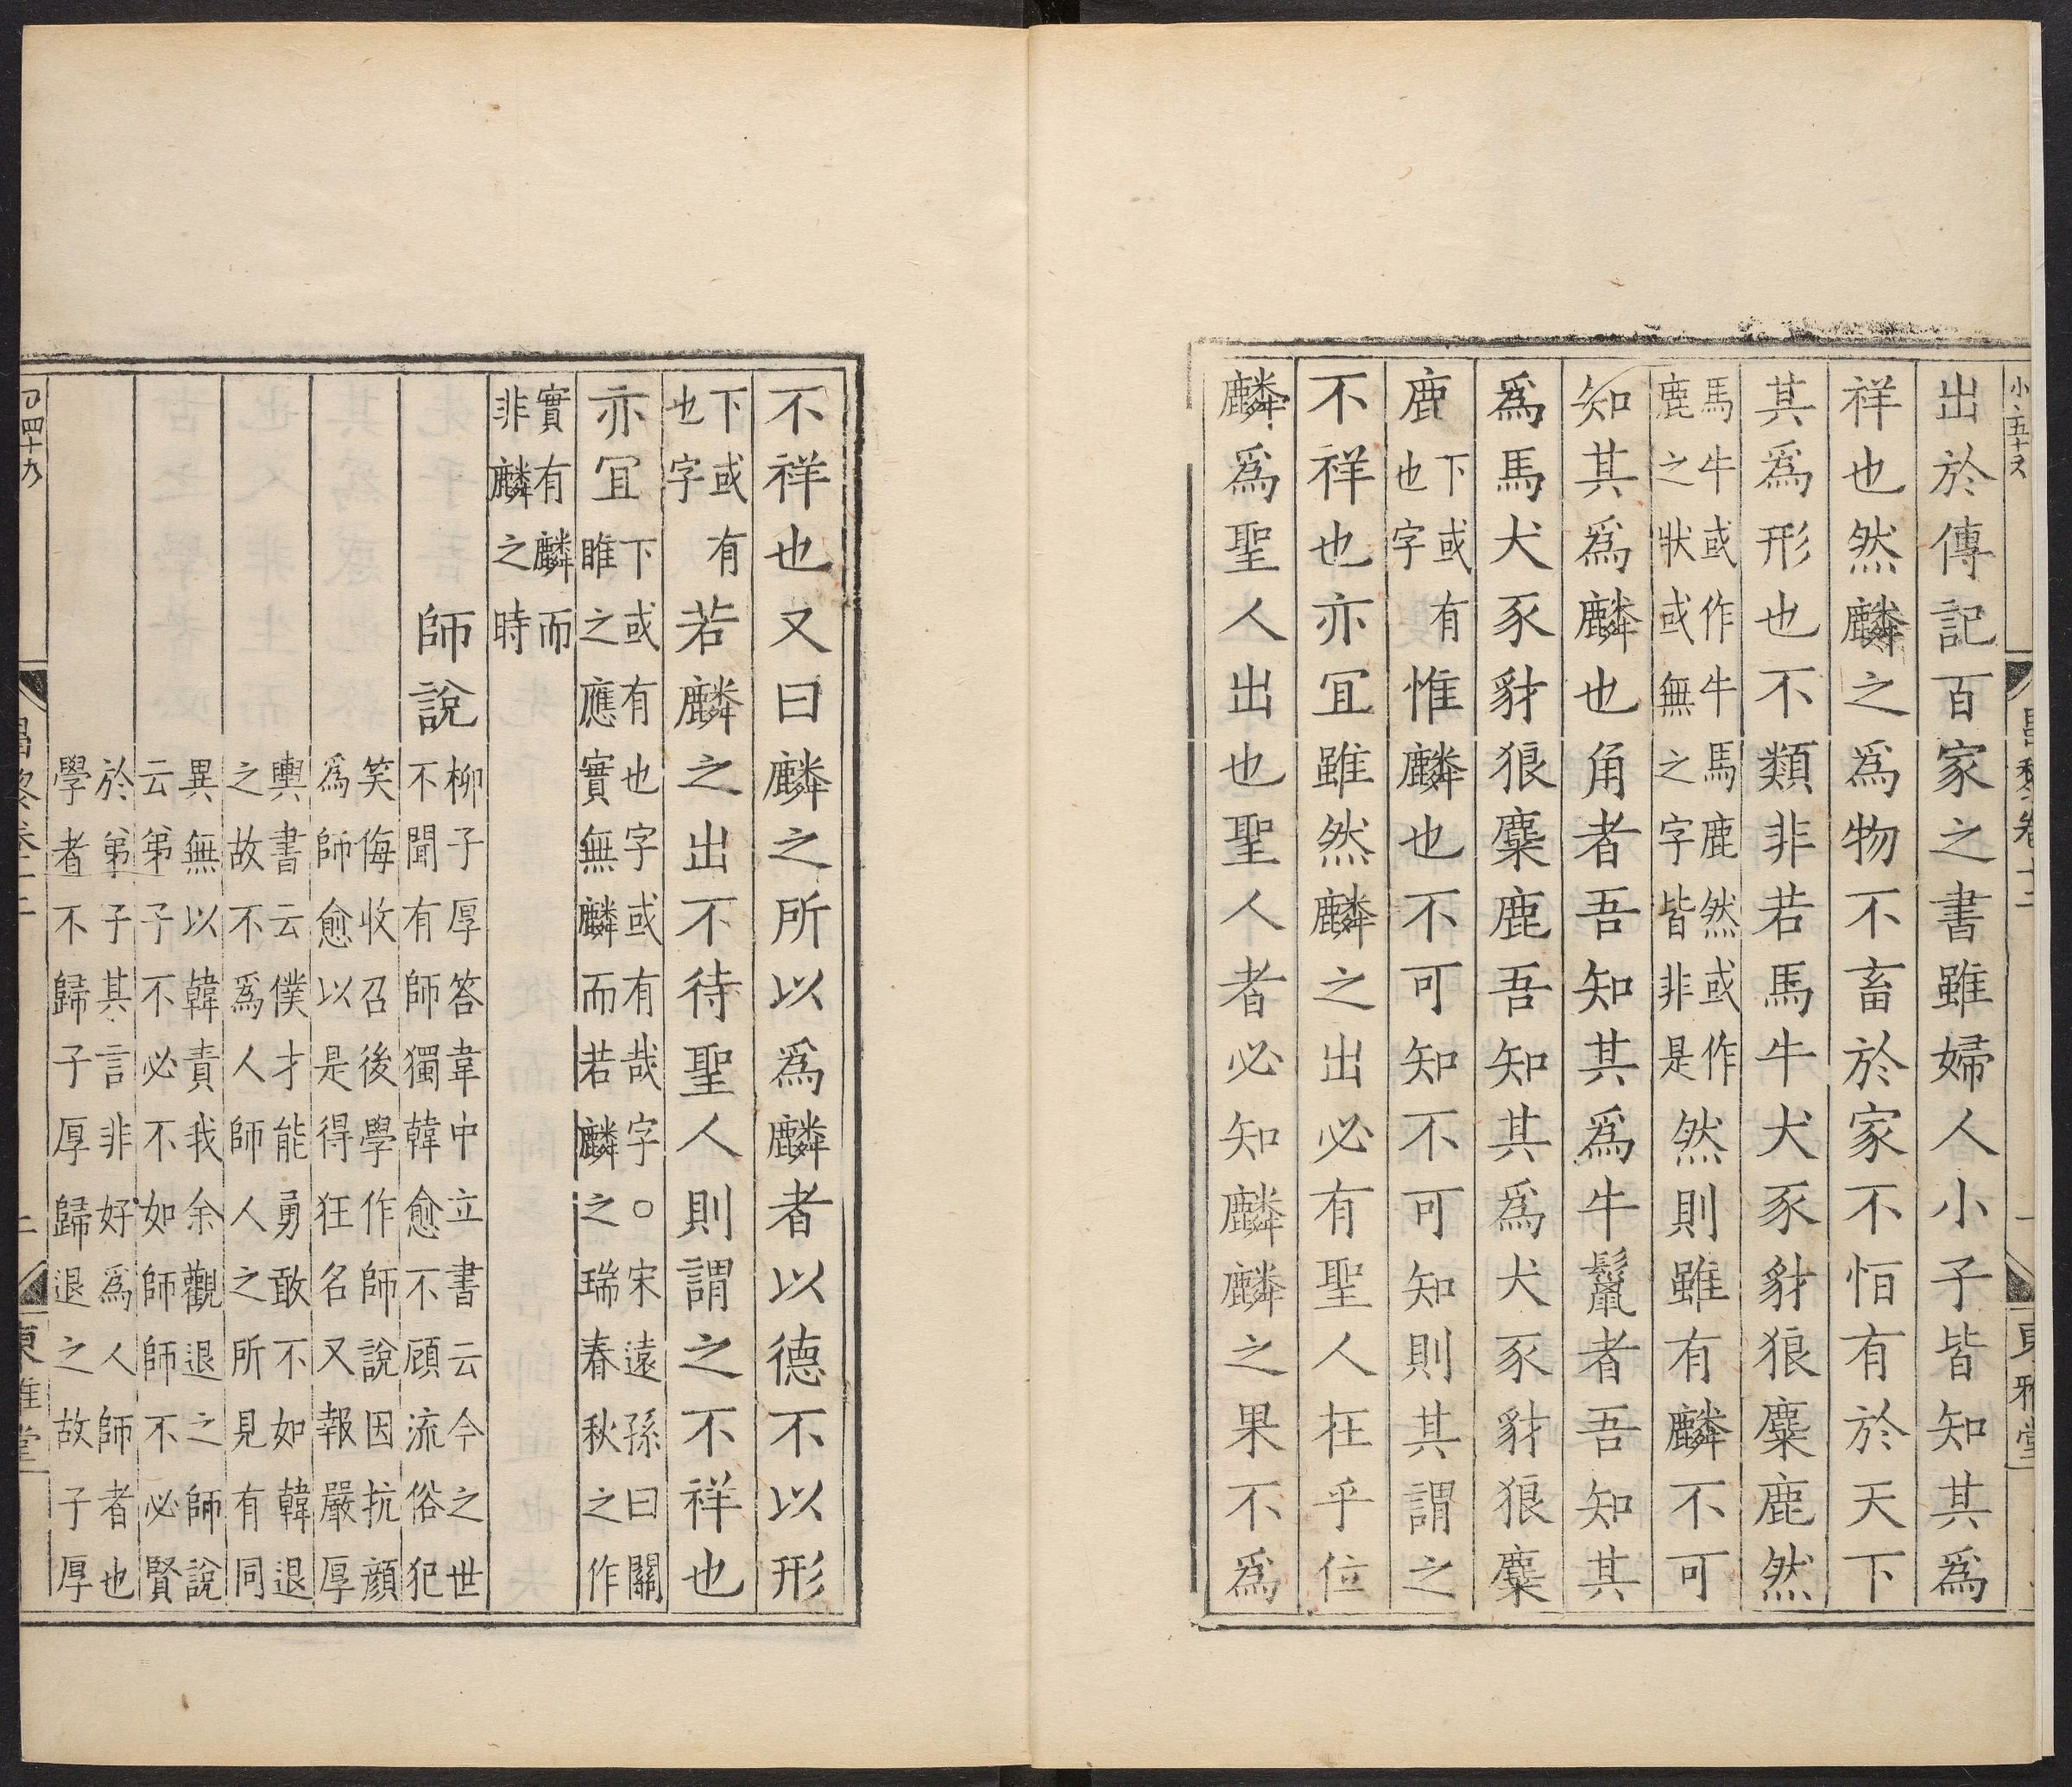 出於傳記百家之書雖婦人小子皆知其爲
祥也然麟之爲物不畜於家不恒有於天下
其爲形也不類非若馬牛犬豕豺狼麋鹿然
馬牛或作牛馬鹿然或作
鹿之狀或無之字皆非是
然則雖有麟不可
知其爲麟也角者吾知其爲牛鬣者吾知其
爲馬犬豕豺狼麋鹿吾知其爲犬豕豺狼麋
鹿
下或有
也字
惟麟也不可知不可知則其謂之
不祥也亦冝雖然麟之出必有聖人在乎位
麟爲聖人出也聖人者必知麟麟之果不爲
不祥也又曰麟之所以爲麟者以德不以形
下或有
也字
若麟之出不待聖人則謂之不祥也
亦冝
下或有也字或有哉字○宋遠孫曰關
睢之應實無麟而若麟之瑞春秋之作
實有麟而
非麟之時
師說
柳子厚答韋中立書云今之世
不聞有師獨韓愈不顧流俗犯
笑侮收召後學作師說因抗顔
爲師愈以是得狂名又報嚴厚
輿書云僕才能勇敢不如韓退
之故不爲人師人之所見有同
異無以韓責我余觀退之師說
云弟子不必不如師師不必賢
於弟子其言非好爲人師者也
學者不歸子厚歸退之故子厚
東雅堂